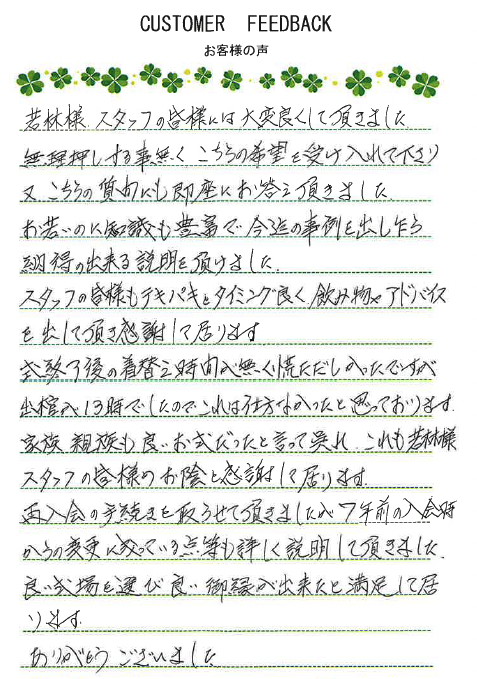 CUSTOMER FEEDBACK
お客様の声
若林様、スタッフの皆様には大変良くして頂きました。
無理押しする事無く こちらの希望を受け入れて下さり
又 こちらの質問にも即座にお答え頂きました。
お若いのに知識も豊富で 今迄の事例を出し乍ら
納得の出来る説明を頂けました。
スタッフの皆様もテキパキとタイミング良く 飲み物やアドバイス
を出して頂き感謝して居ります
式終了後の着替え時間が無く慌ただしかったですが
出棺が13時でしたのでこれは仕方なかったと思っております。
家族 親族も良いお式だったと言って呉れ、これも若林様
スタッフの皆様のお陰と感謝して居ります。
再入会の手続きを取らせて頂きましたが 7年前の入会時
からの変更に成っている点等も詳しく説明して頂きました。
良い式場を選び良い御縁が出来たと満足して居
ります。
ありがとう ございました